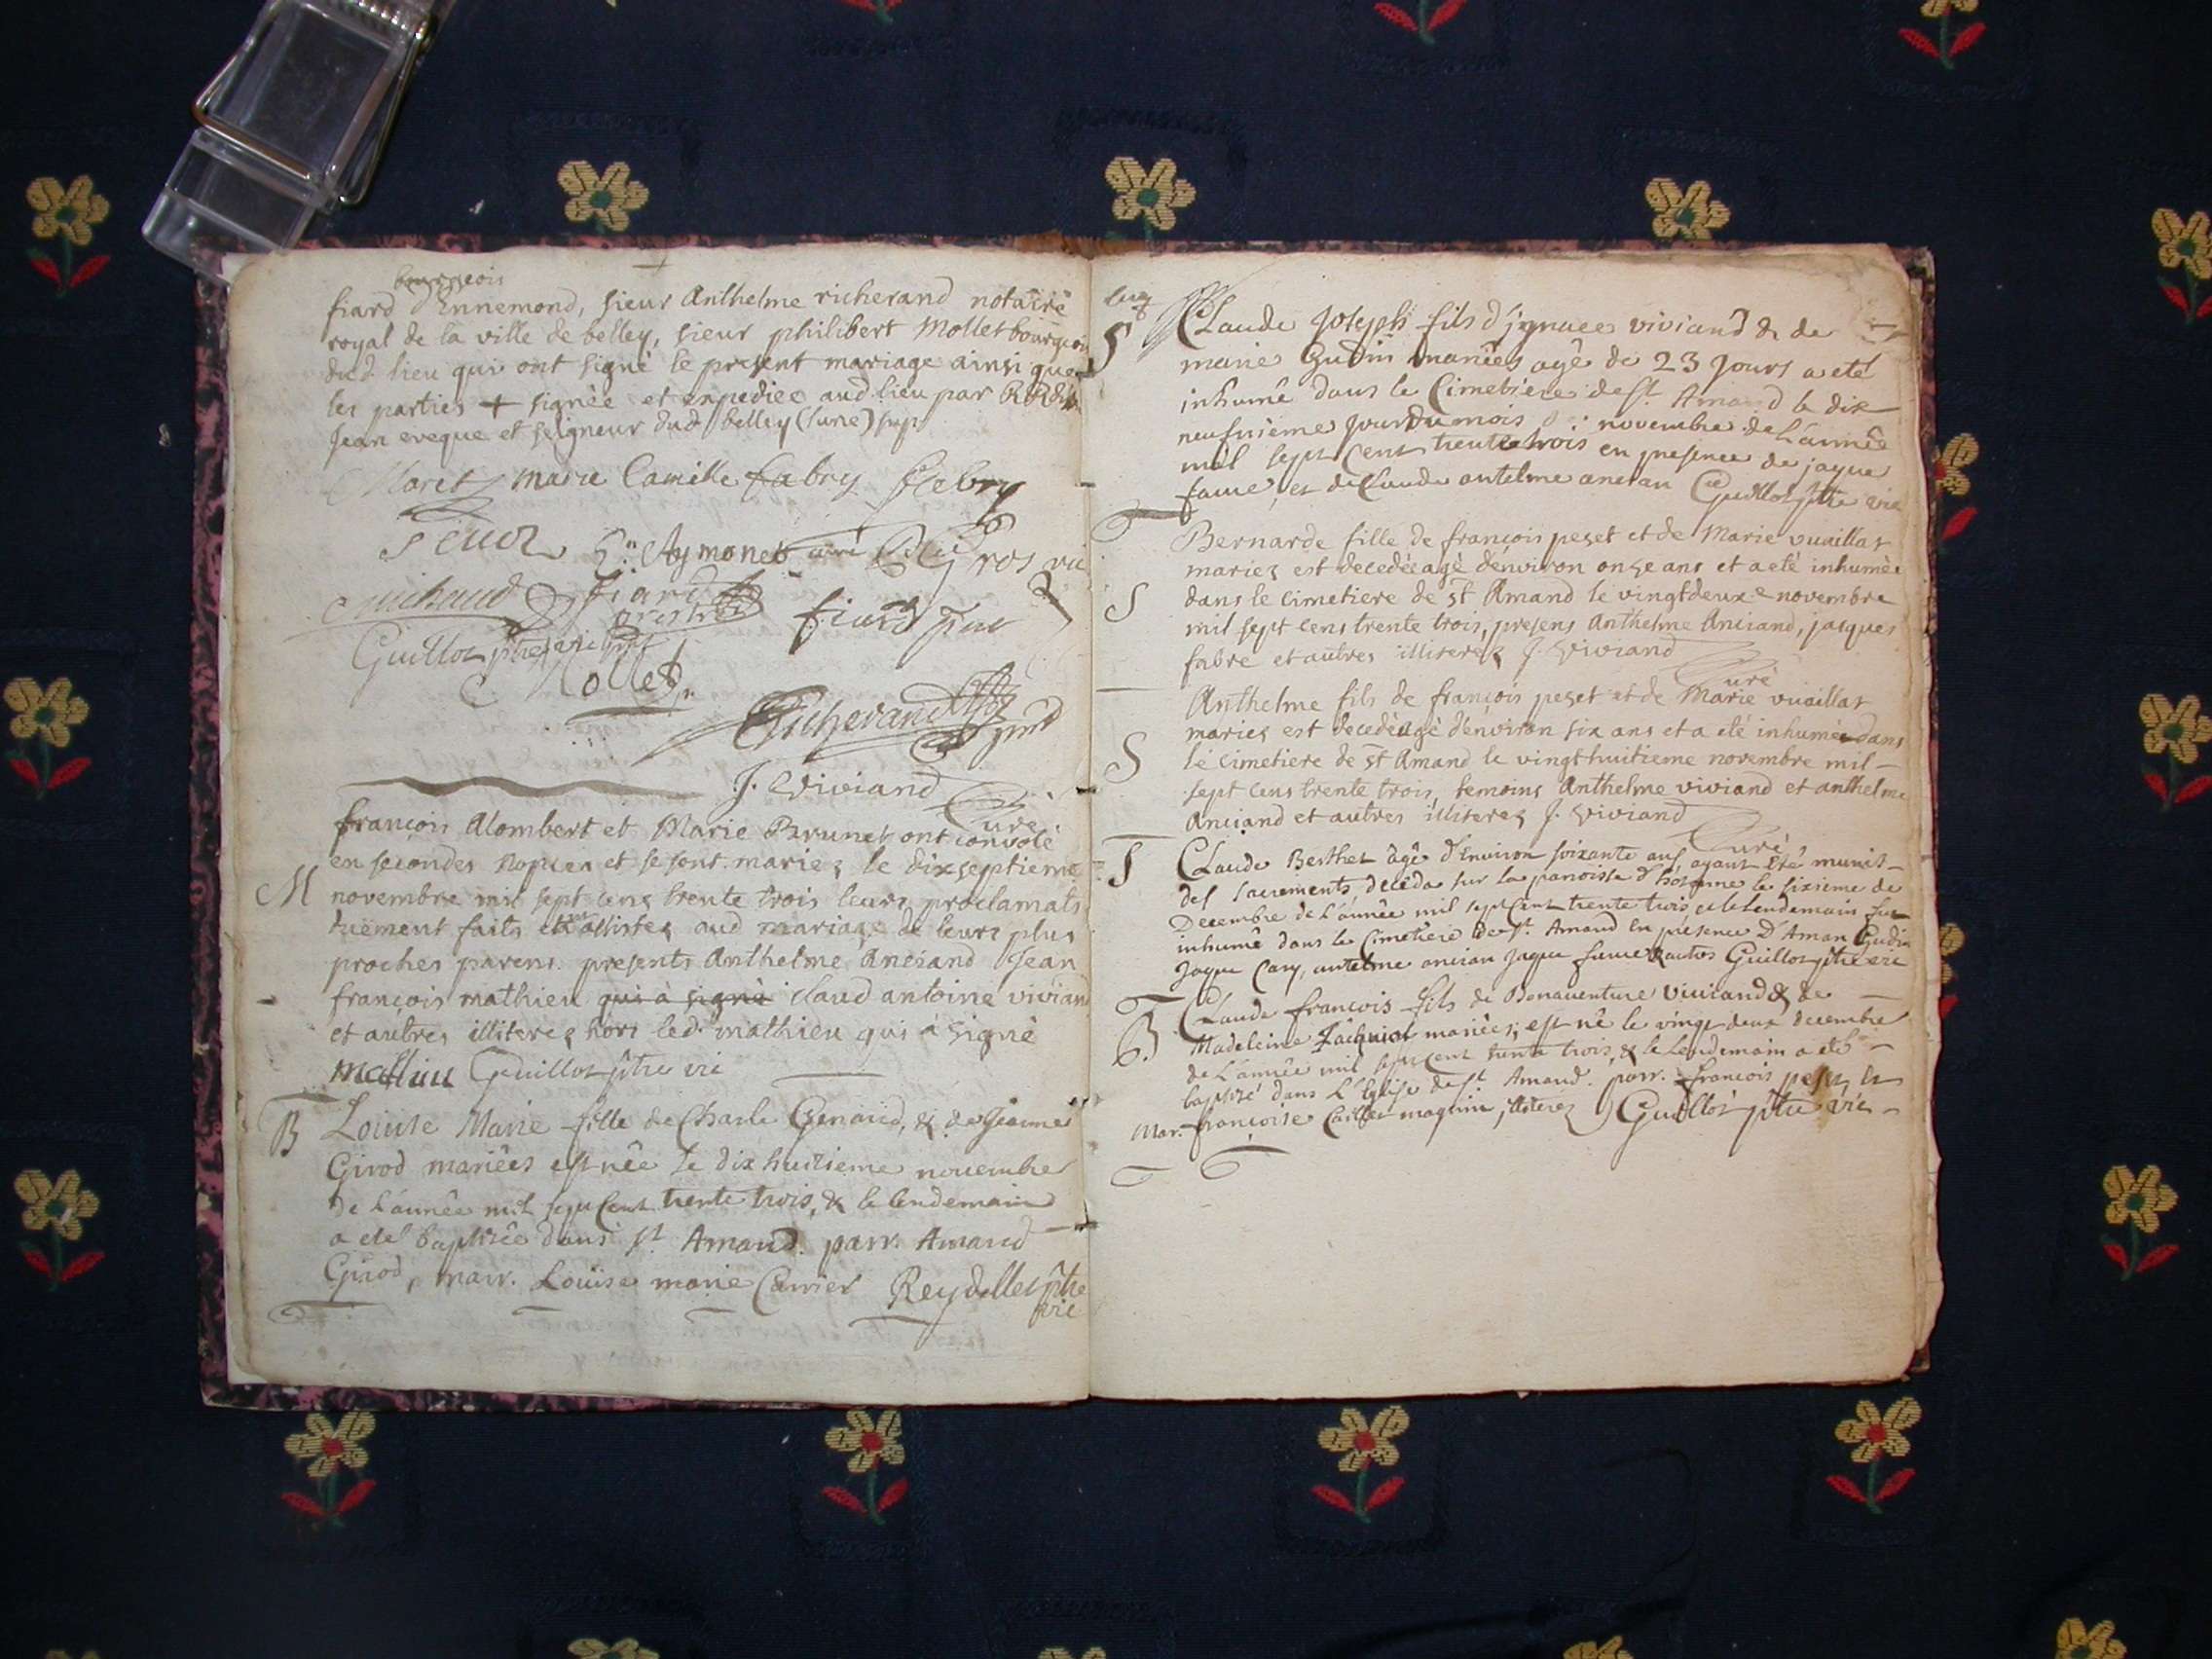 bourgeois
fiard d'Ennemond, sieur Anthelme richerand notaire
royal de la ville de belley, sieur philibert Mollet bourgeois
dud lieu qui ont signé le present mariage ainsi que
les parties + signée et expediée aud. lieu par
Jean eveque et seigneur dud belley
marie Camille fabry
Aymonet curé Gros vic
michaud fiard
prestre fiard
Guilloz ptre vic
Mollet
Richerand
J. Viviand
Curé
françois Alombert et Marie Brunet ont convolé
en secondes nopces et se sont mariez le dixseptieme
M novembre mil sept cens trente trois leurs proclamats
duëment faits et assistez aud mariage de leurs plus
proches parens. presents Anthelme Anciand Jean
françois mathieu qui à signé claud antoine vivian
et autres illiterez hors led. mathieu qui à signé
Mathieu Guilloz ptre vic
B Louise Marie fille de Charle Genaud, & de Jeanne
Girod mariées est née le dix huitieme novembre
de l'année mil sept cent trente trois, & le lendemain
a eté baptisée dans st. Amand. parr. Amand
Girod, marr. Louise marie Carrier Reydellet ptre
vic
S Claude Joseph fils d'ignace viviand & de
marie Gudin mariées agé de 23 jours a eté
inhumé dans le Cimetiere de st. Amand le dix
neufvieme jour du mois de novembre de l'année
mil sept cent trente trois en presence de jaque
favre, et de Claude antelme ancian Guilloz ptre vic
Bernarde fille de françois peset et de Marie vuaillat
mariez est decedée agé d'environ onze ans et a eté inhumée
S dans le cimetiere de st Amand le vingt deuxe novembre
mil sept cens trente trois, presens Anthelme Anciand, jacques
fabre et autres illiterez J. Viviand
Curé
Anthelme fils de françois peset et de Marie vuaillat
mariez est decedé agé d'environ six ans et a eté inhumée dans
S le cimetiere de st Amand le vingt huitieme novembre mil
sept cens trente trois, temoins Anthelme viviand et anthelme
Anciand et autres illiterez J. Viviand
Curé
S Claude Berthet agé d'Environ soixante ans, ayant eté munit
des sacrements deceda sur la paroisse d'hôtonne le sixieme de
Decembre de l'année mil sept cent trente trois et le lendemain fut
inhumé dans le Cimetiere de st. Amand En présence D'Aman Gudin
Jaque Cary, antelme ancian jaque favre & autres Guilloz ptre vic
Claude françois fils de Bonaventure viviand & de
B Madeleine Jacquiot mariées, est né le vingt deux decembre
de l'année mil sept cent trente trois, & le lendemain a eté
baptisé dans l'Eglise de st Amand. parr. françois peset, et
Mar. françoise Caillet maquin illiterez Guilloz ptre vic